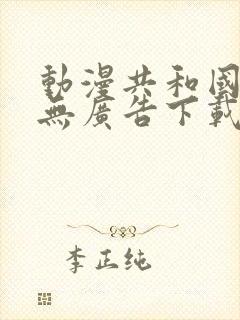 動漫共和國
無廣告下載
李正纯